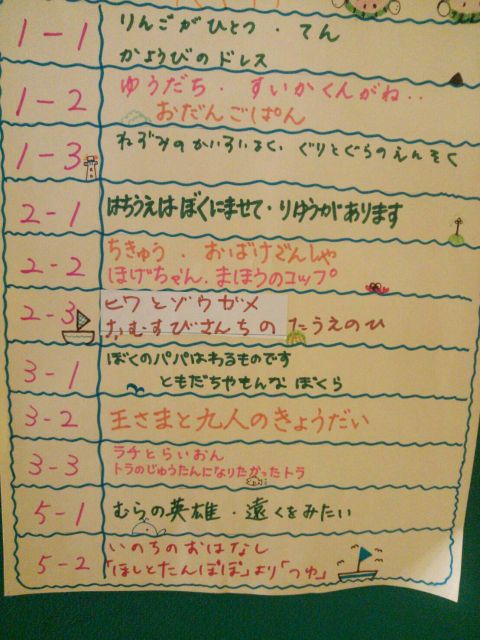 1-1
りんごがひとつ・てん
かようびのドレス
1-2
ゆうだち・すいかくんがね‥
おだんごぱん
1-3
ねずみのかいすいよく ぐりとぐらのえんそく
2-1
はちうえはぼくにまかせて・りゆうがあります
2-2
ちきゅう・おばけでんしゃ
ほげちゃん.まほうのコップ
2-3
ヒワとゾウガメ
おむすびさんちのたうえのひ
3-1
ぼくのパパはわるものです
ともだちやもんな ぼくら
3-2
王さまと九人のきょうだい
3-3
ラチとらいおん
トラのじゅうたんになりたかったトラ
5-1
むらの英雄・遠くをみたい
5-2
いのちのおはなし
「ほしとたんぽぽ」より「つゆ」